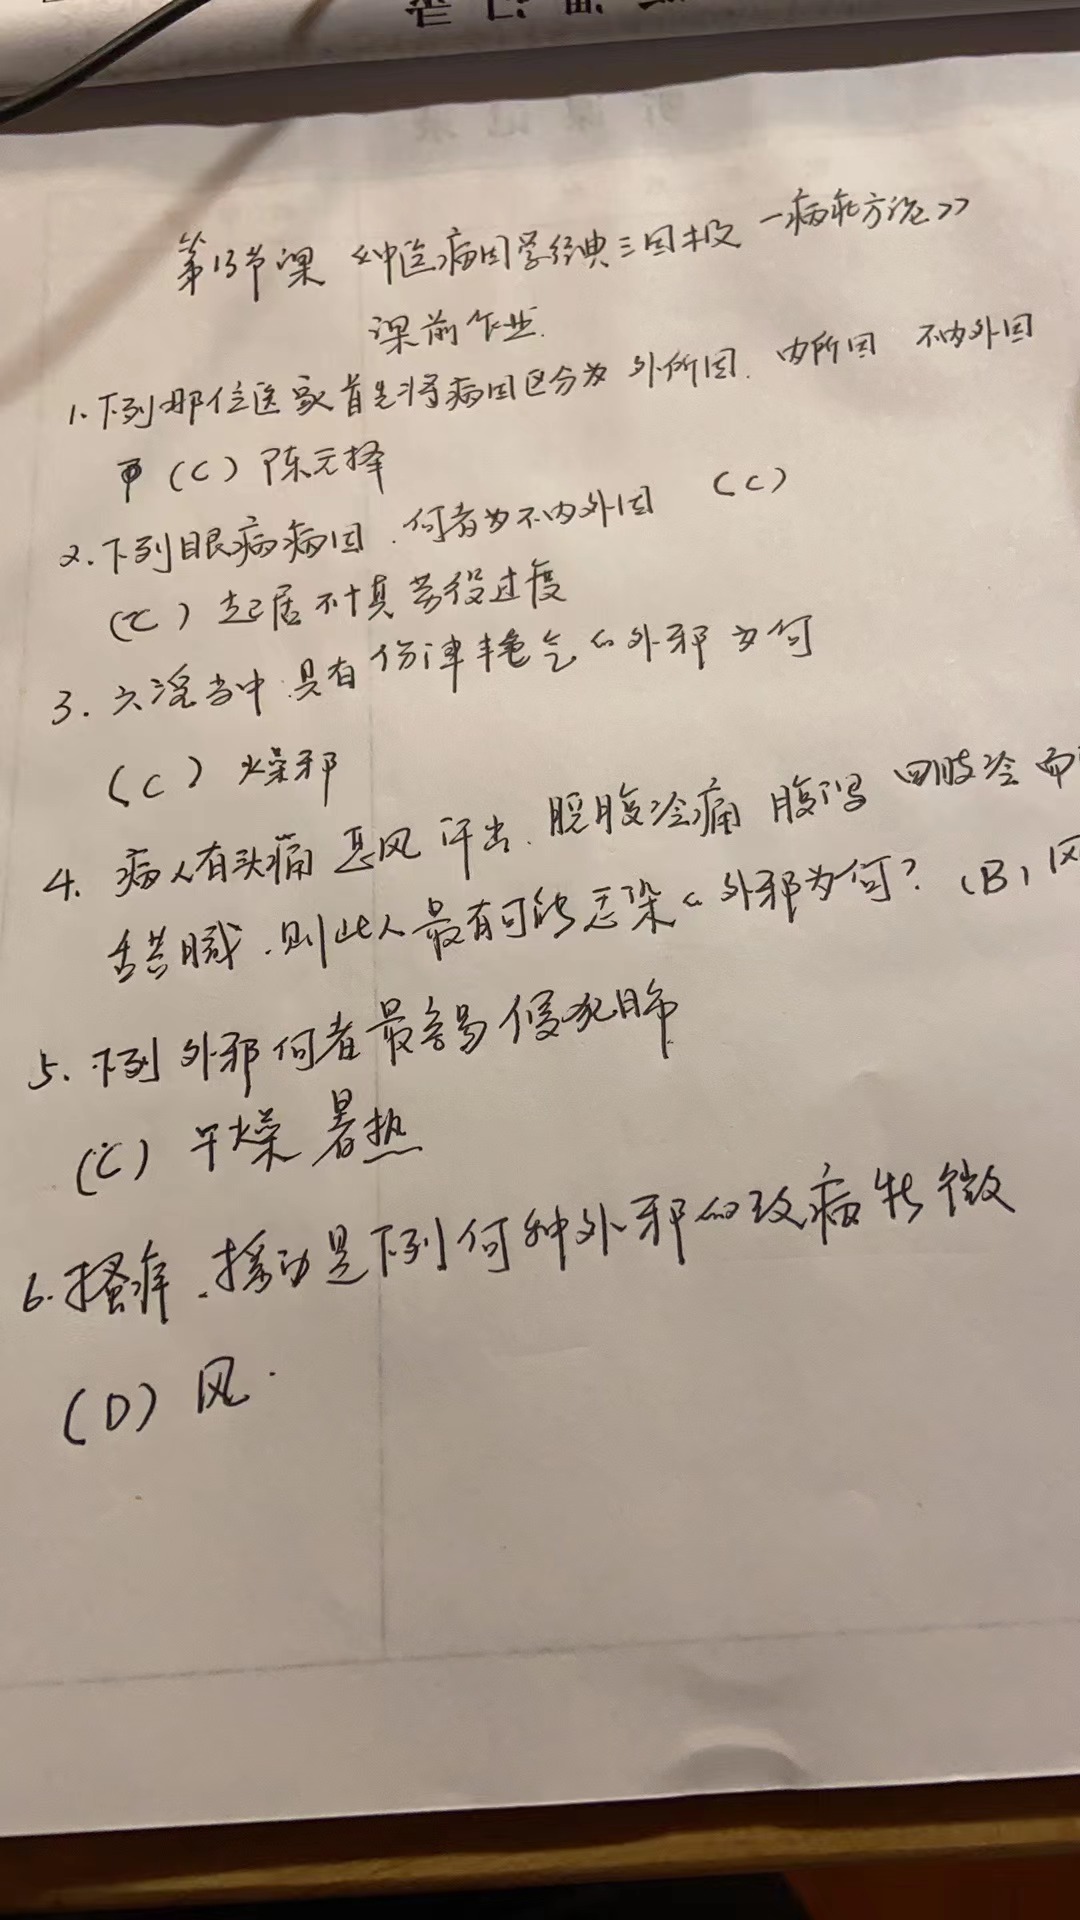 第13节课 《中医病因学经典三因极一病症方论》
课前作业.
1. 下列那位医家首先将病因区分为 外所因. 内所因 不内外因
(C) 陈无择
2. 下列眼病病因. 何者为不内外因 (C)
(C) 起居不慎 劳役过度
3. 六淫当中 具有 伤津耗气的外邪为何
(C) 燥邪
4. 病人有头痛 恶风 汗出. 脘腹冷痛 腹泻 四肢冷 而
舌苔腻. 则此人最有可能感染的外邪为何? (B) 风
5. 下列外邪何者最容易侵犯肺
(C) 干燥 暑热
6. 搔痒. 摇动是下列何种外邪的致病特徵
(D) 风.